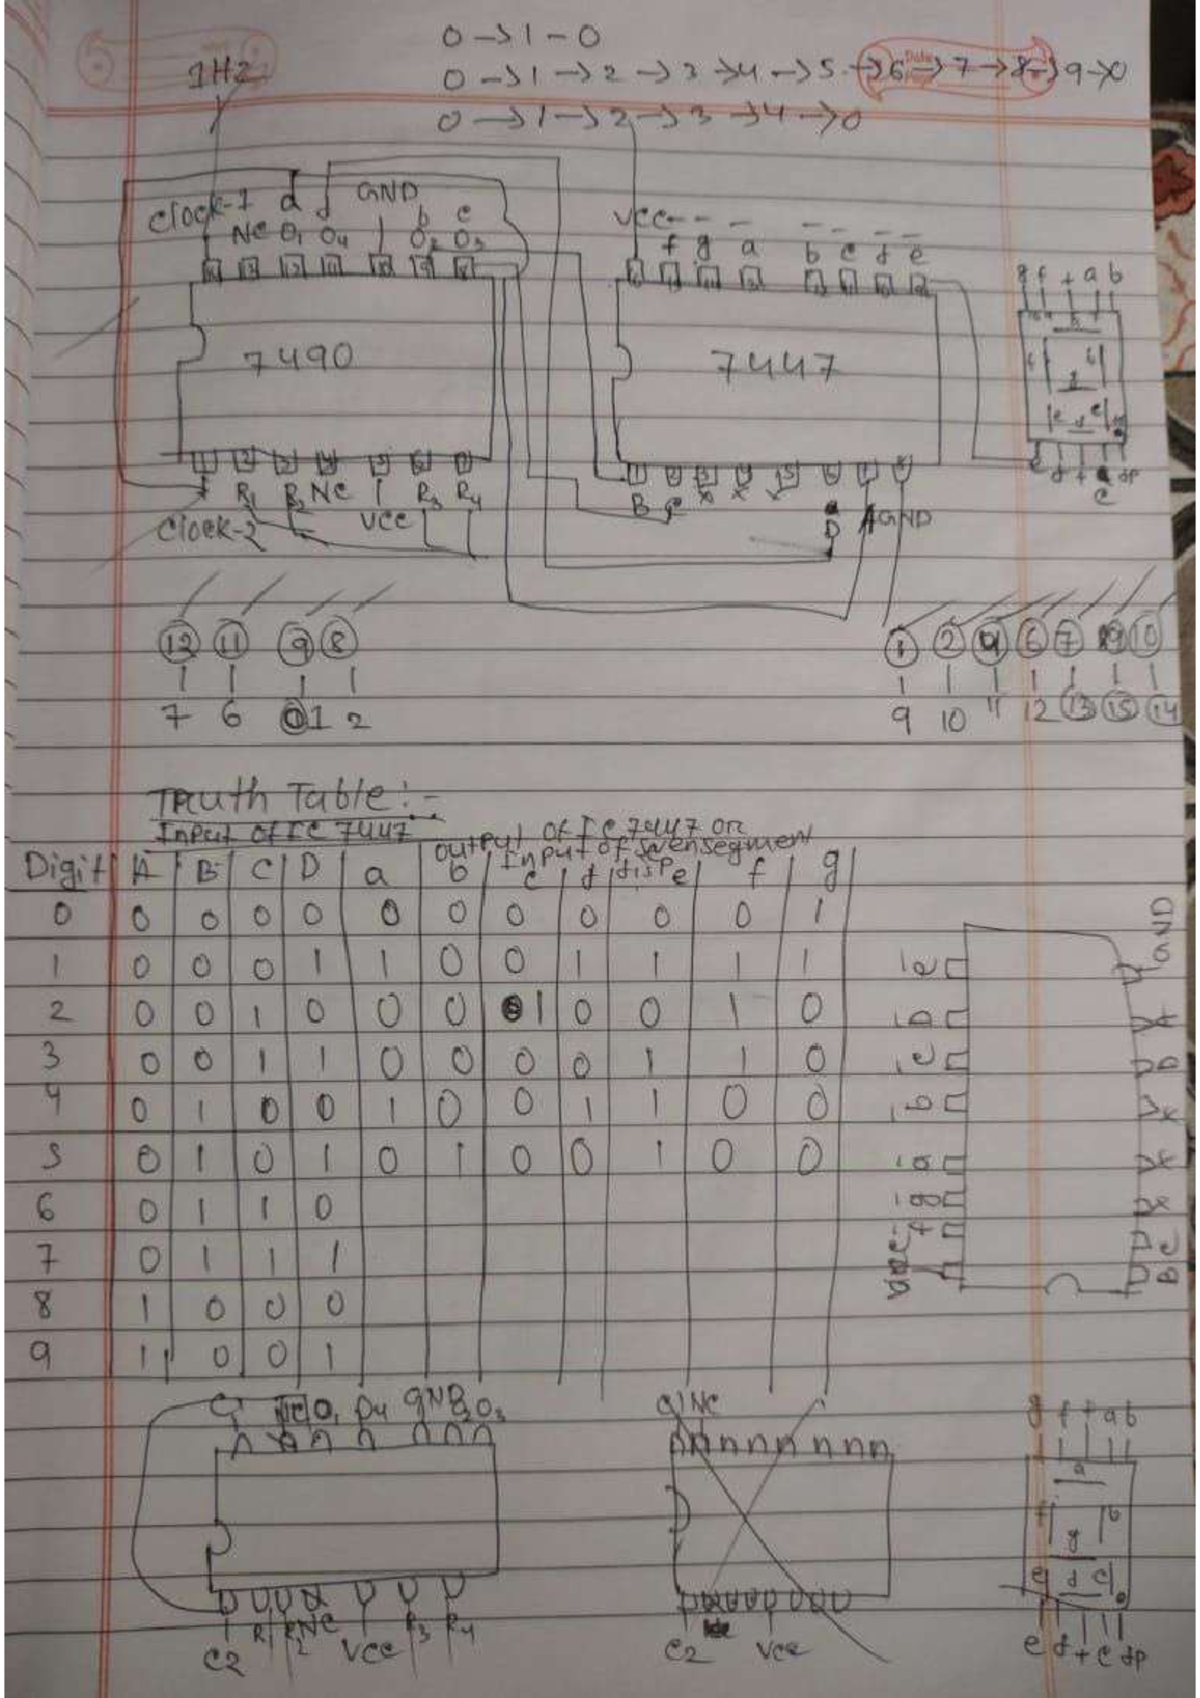 0 → 1 - 0
1Hz
0 → 1 → 2 → 3 → 4 → 5 → 6 → 7 → 8 → 9 → 0
0 → 1 → 2 → 3 → 4 → 0
Clock-1 d d GND b c
NC O1 O4 O2 O3
VCC f g a b c d e
g f + a b
7490
7447
a
f b
g
e d c
1 2 3 4 5 6 7
1 2 3 4 5 6 7 8
R1 R2 NC VCC R3 R4
Clock-2
B C x x x D A GND
e d + c dp
12 11 9 8
7 6 1 2
1 2 4 6 7 9 10
9 10 11 12 13 15 14
Truth Table:-
Input of IC 7447
Output of IC 7447 or
Input of sevensegment
disp
Digit A B C D a b c d e f g
0 0 0 0 0 0 0 0 0 0 0 1
1 0 0 0 1 1 0 0 1 1 1 1
2 0 0 1 0 0 0 1 0 0 1 0
3 0 0 1 1 0 0 0 0 1 1 0
4 0 1 0 0 1 0 0 1 1 0 0
5 0 1 0 1 0 1 0 0 1 0 0
6 0 1 1 0
7 0 1 1 1
8 1 0 0 0
9 1 0 0 1
e d c b a g f
GND A D x x x C B
C1 NC O1 O4 GND O2 O3
C1 NC
g f + a b
a
f b
g
e d c
C2 R1 R2 NC VCC R3 R4
C2 VCC
e d + c dp